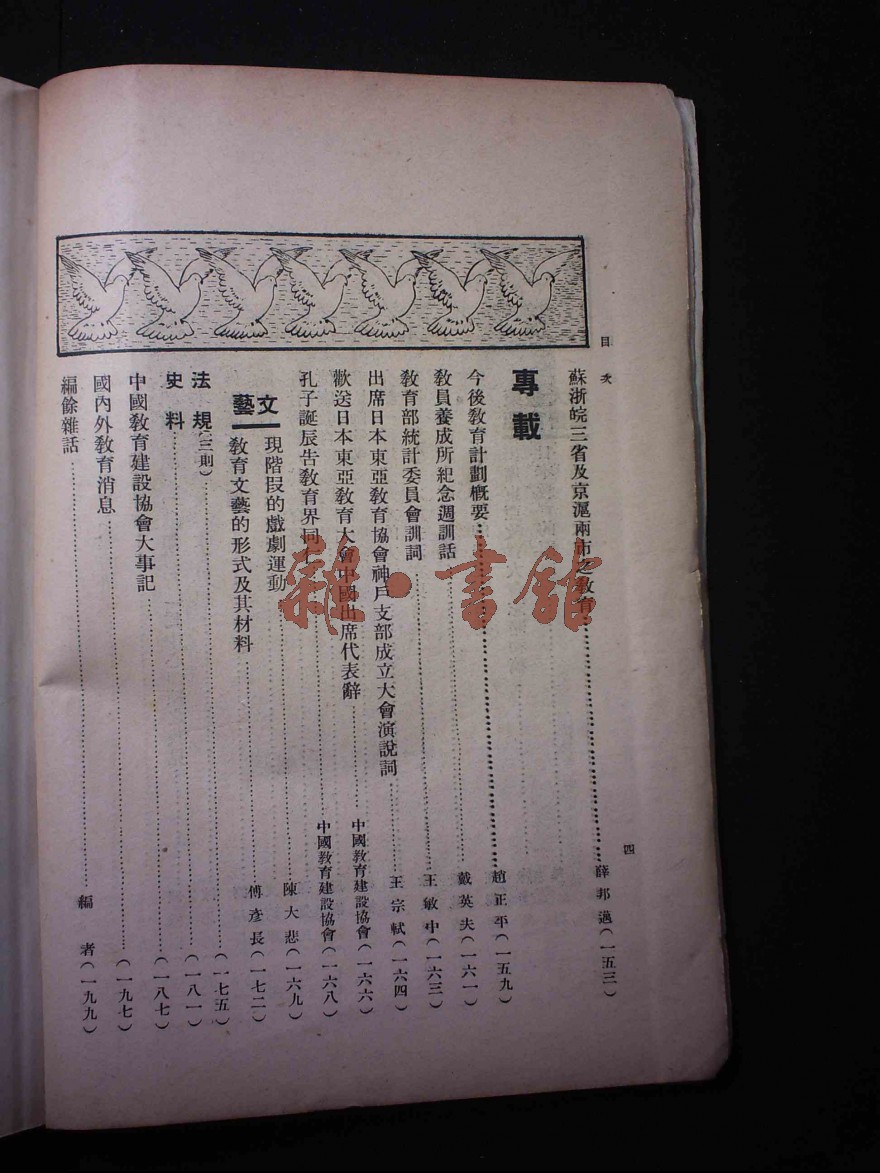 目次
四
蘇浙皖三省及京滬兩市之教育……薛邦邁(一五三)
專載
今後教育計劃概要……趙正平(一五九)
教員養成所紀念週訓話……戴英夫(一六一)
教育部統計委員會訓詞……王敏中(一六三)
出席日本東亞教育協會神戶支部成立大會演說詞……王宗軾(一六四)
歡送日本東亞教育大會中國出席代表辭……中國教育建設協會(一六六)
孔子誕辰告教育界同……中國教育建設協會(一六八)
文藝
現階段的戲劇運動……陳大悲(一六九)
教育文藝的形式及其材料……傅彥長(一七二)
法規(三則)……(一七五)
史料……(一八一)
中國教育建設協會大事記……(一八七)
國內外教育消息……(一九七)
編餘雜話……編者(一九九)
雜·書館